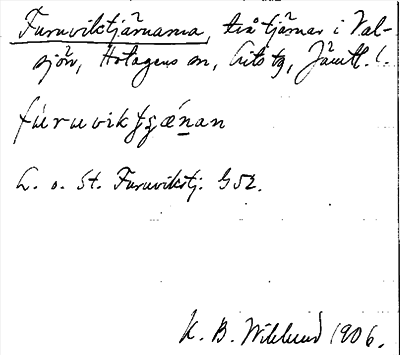 Furuviktjärnarna, två tjärnar i Val-
sjön, Hotagens sn, Lits tg, Jämtl. l.
fúruviktjæ̀nan
L. o. St. Furuvikstj. G52.
K. B. Wiklund 1906.